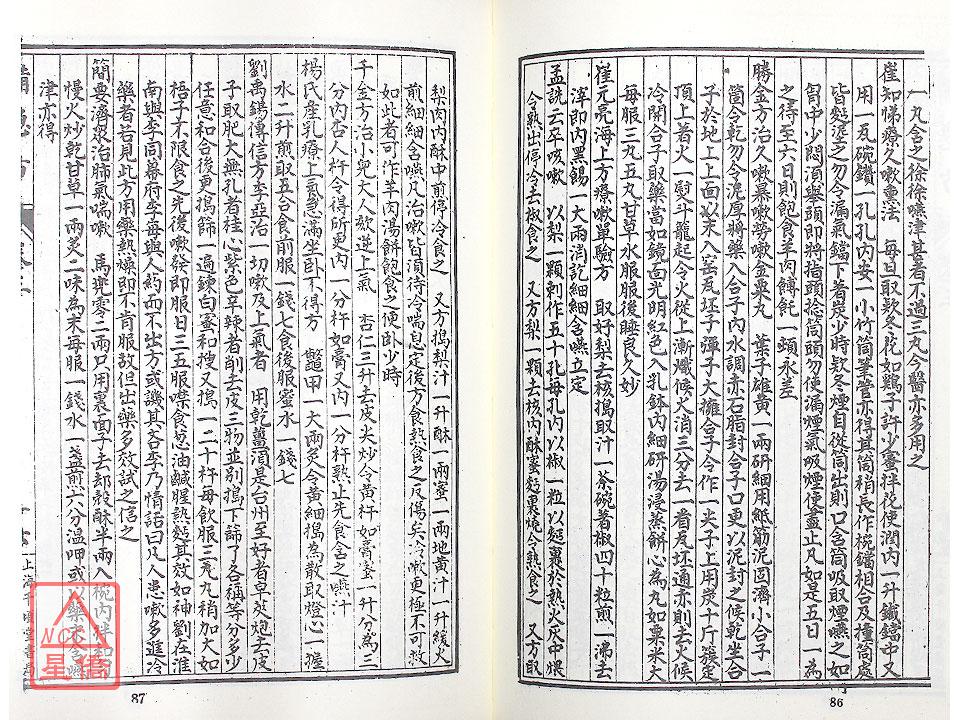 一丸含之徐徐嚥津甚者不過三丸今醫亦多用之
崔知悌療久嗽熏法 每旦取款冬花如鷄子許少蜜拌花使潤內一升鐵鐺中又
用一瓦碗鑽一孔孔內安一小竹筒筆管亦得其筒稍長作椀鐺相合及撞筒處
皆麪塗之勿令漏氣鐺下着炭少時款冬煙自從筒出則口含筒吸取煙嚥之如
胷中少悶須舉頭即將指頭捻筒頭勿使漏煙氣吸煙使盡止凡如是五日一為
之得至六日則飽食羊肉餺飥一頓永差
勝金方治久嗽暴嗽勞嗽金粟丸 葉子雄黃一兩研細用紙筋泥固濟小合子一
箇令乾勿令泥厚將藥入合子內水調赤石脂封合子口更以泥封之候乾坐合
子於地上上面以末入窑瓦坯子彈子大擁合子令作一尖子上用炭十斤簇定
頂上着火一熨斗籠起令火從上漸熾候火消三分去一看瓦坯通赤則去火候
冷開合子取藥當如鏡面光明紅色入乳鉢內細研湯浸蒸餅心為丸如粟米大
每服三丸五丸甘草水服服後睡良久妙
崔元亮海上方療嗽單驗方 取好梨去核搗取汁一茶碗着椒四十粒煎一沸去
滓即內黑餳一大兩消訖細細含嚥立定
孟詵云卒咳嗽 以梨一顆刺作五十孔每孔內以椒一粒以麪裹於熱火灰中煨
令熟出停冷去椒食之 又方梨一顆去核內酥蜜麪裹燒令熟食之 又方取
梨肉內酥中煎停冷食之 又方搗梨汁一升酥一兩蜜一兩地黃汁一升緩火
煎細細含嚥凡治嗽皆須待冷喘息定後方食熱食之反傷矣冷嗽更極不可救
如此者可作羊肉湯餅飽食之便臥少時
千金方治小兒大人欬逆上氣 杏仁三升去皮尖炒令黃杵如膏蜜一升分為三
分內杏人杵令得所更內一分杵如膏又內一分杵熟止先食含之嚥汁
楊氏產乳療上氣急滿坐臥不得方 鼈甲一大兩炙令黃細搗為散取燈心一握
水二升煎取五合食前服一錢七食後服蜜水一錢七
劉禹錫傳信方李亞治一切嗽及上氣者 用乾薑須是台州至好者皂莢炮去皮
子取肥大無孔者桂心紫色辛辣者削去皮三物並別搗下篩了各稱等分多少
任意和合後更搗篩一遍鍊白蜜和搜又搗一二千杵每飲服三丸丸稍加大如
梧子不限食之先後嗽發即服日三五服噤食葱油鹹腥熱麪其效如神劉在淮
南與李同幕府李每與人約而不出方或譏其吝李乃情話曰凡人患嗽多進冷
藥者若見此方用藥熱燥即不肯服故但出藥多效試之信之
簡要濟衆治肺氣喘嗽 馬兜零二兩只用裏面子去却殼酥半兩入椀內拌和勻
慢火炒乾甘草一兩炙二味為末每服一錢水一盞煎六分溫呷或以藥末含嚥
津亦得
上海千頃堂書局
NCC
星僑
87
86